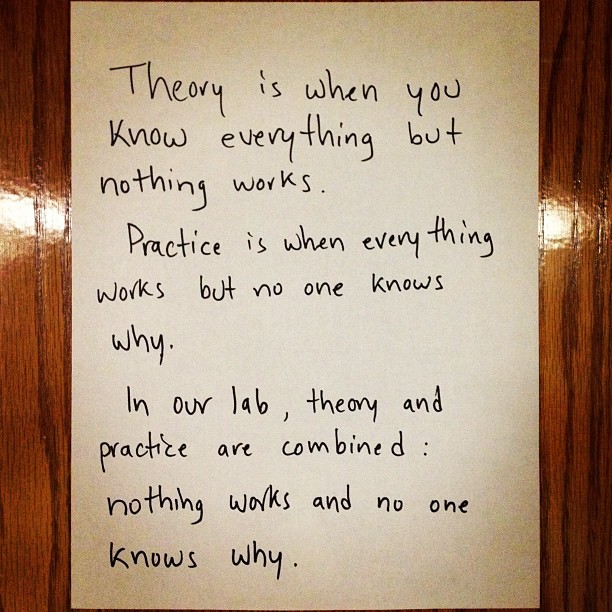 Theory is when you
know everything but
nothing works.
Practice is when everything
works but no one knows
why.
In our lab, theory and
practice are combined:
nothing works and no one
knows why.